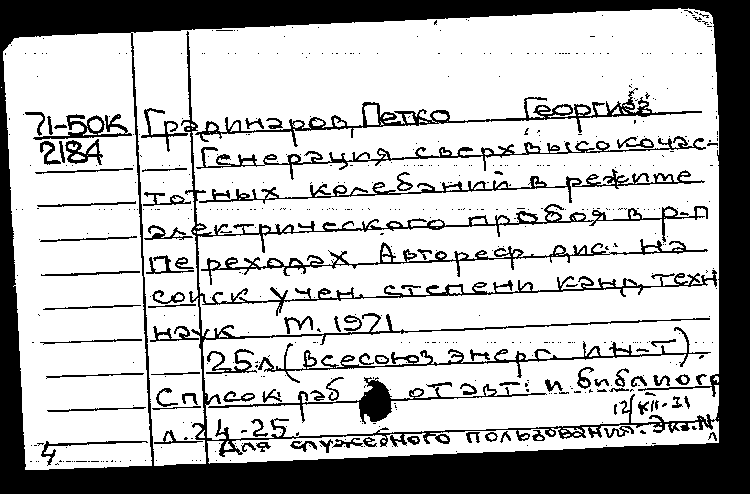 71-50К Градинаров, Петко Георгиев
2184 Генерация сверхвысокочас-
тотных колебаний в режиме
электрического пробоя в p-n
переходах. Автореф. дис. на
соиск учен. степени канд. техн
наук М., 1971.
25л. (Всесоюз энерг. ин-т).
Список раб от авт: и библиогр
12/XII-31
л.24-25.
4 Для служебного пользования. Экз.N